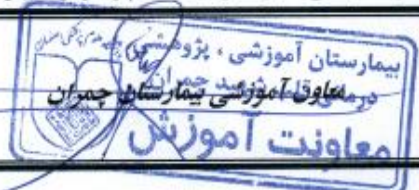 بیمارستان آموزشی ، پژوهشی
درمانی قلب شهید چمران
معاون آموزشی بیمارستان چمران
معاونت آموزش